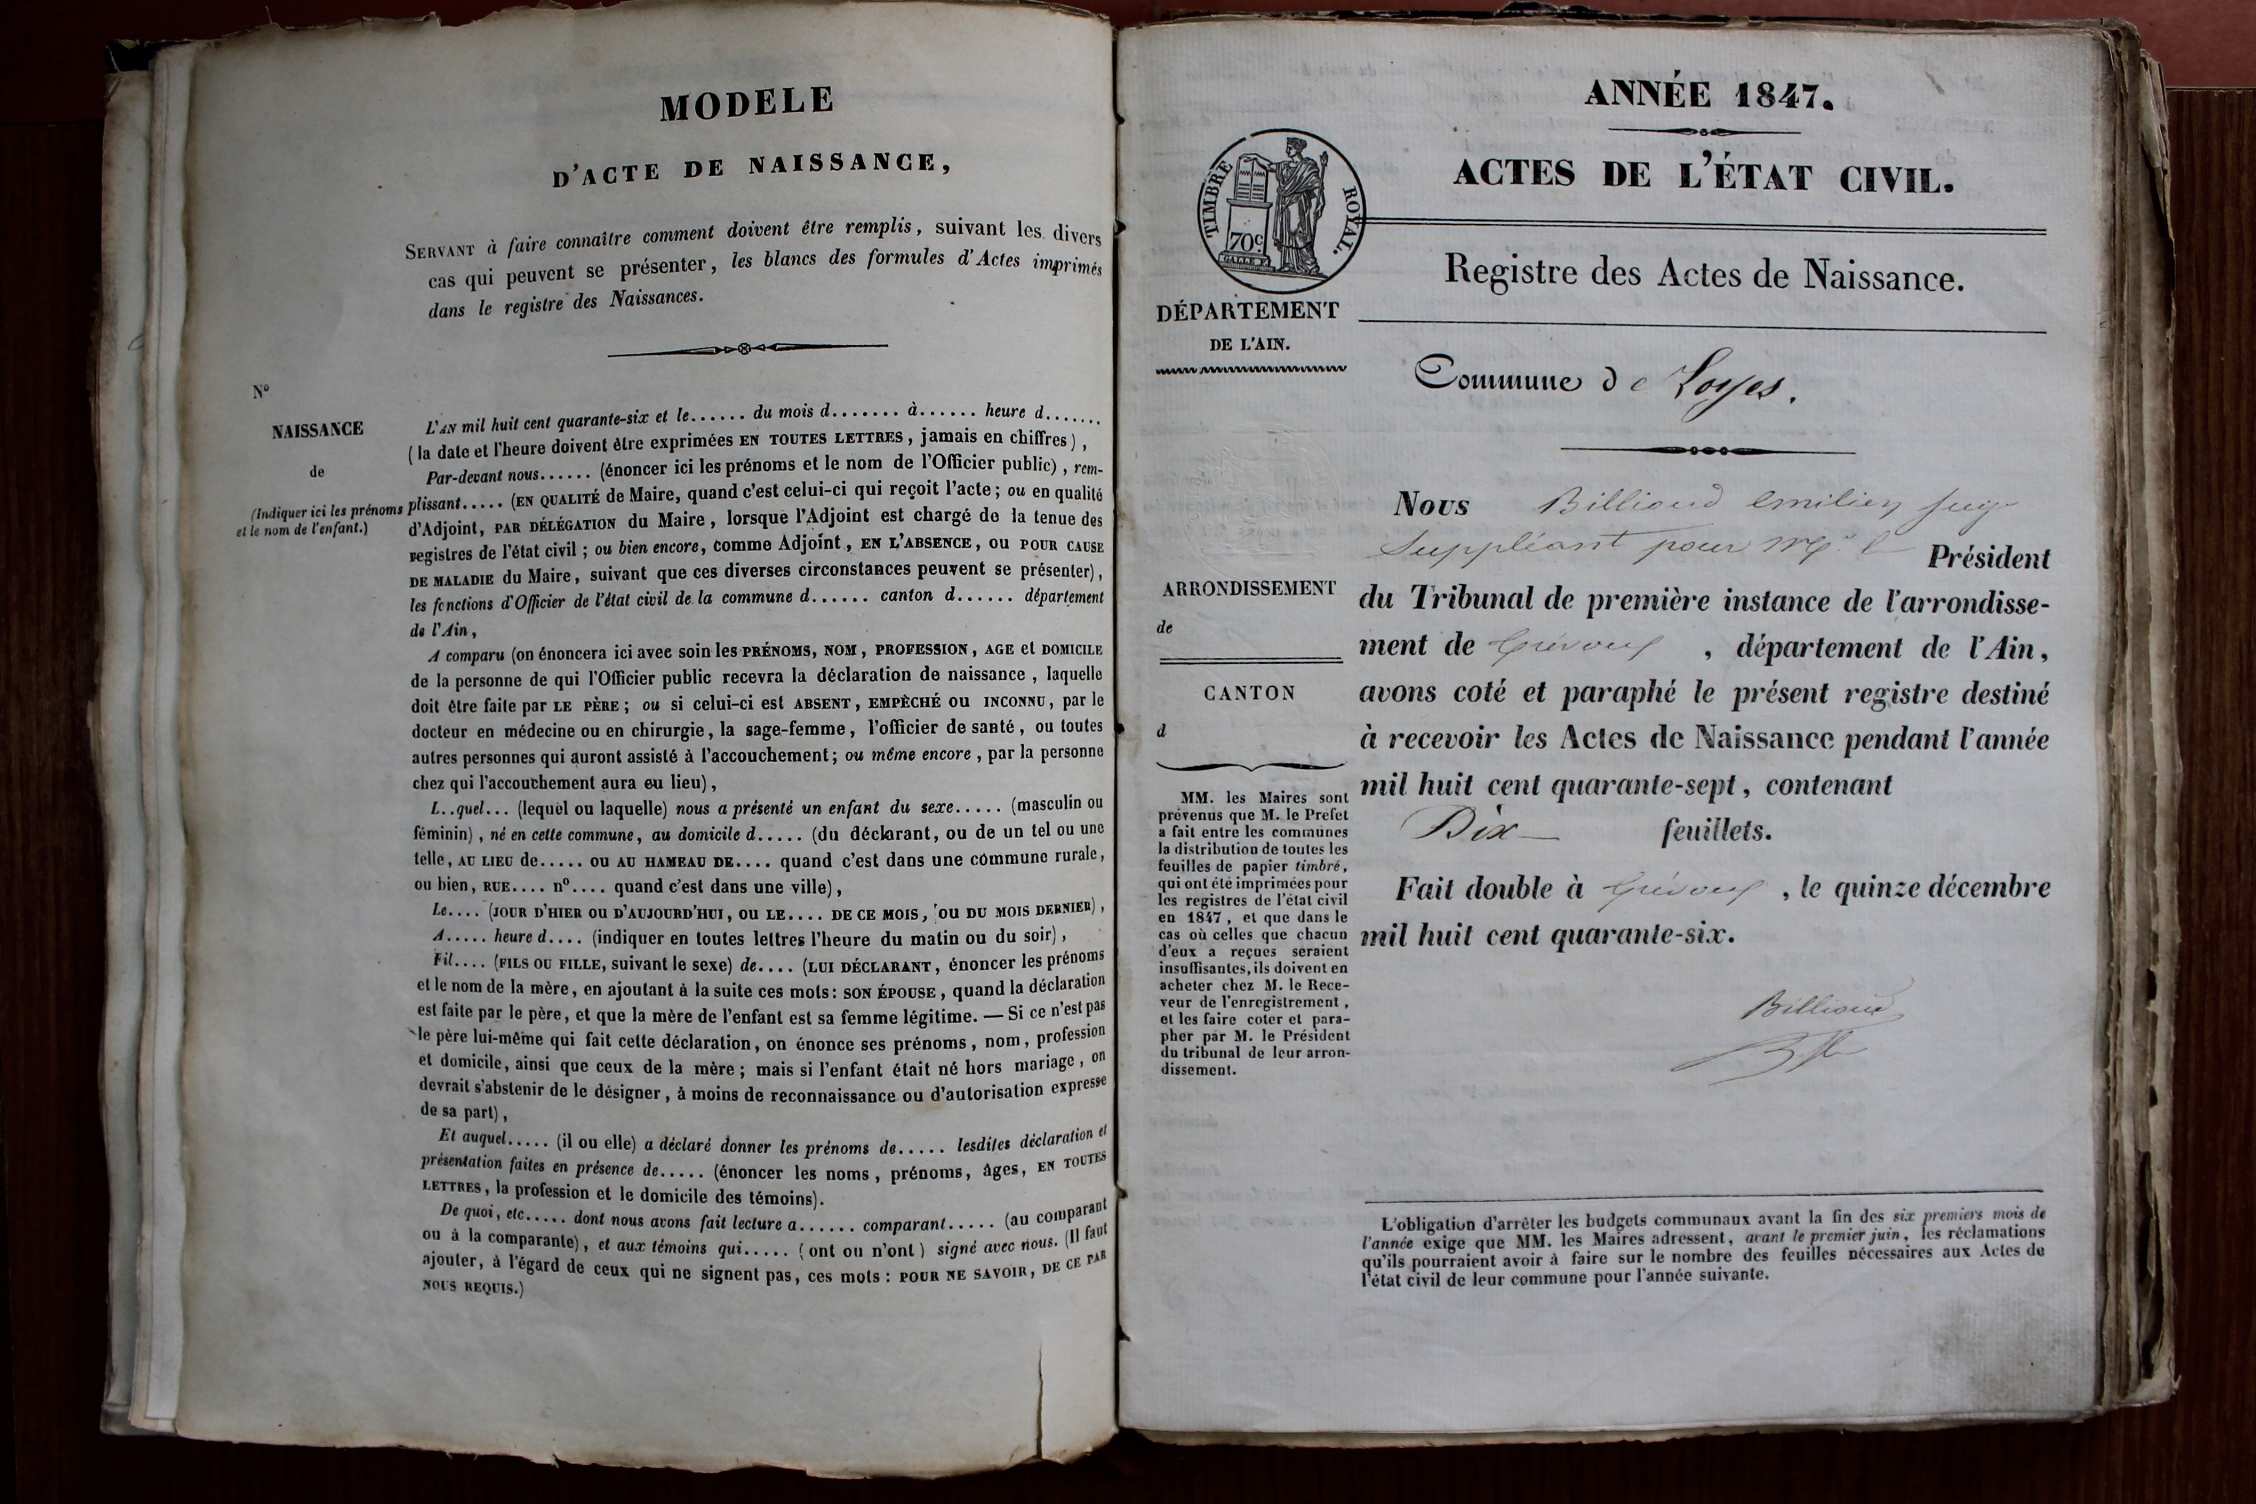 MODELE
D'ACTE DE NAISSANCE,
SERVANT à faire connaître comment doivent être remplis, suivant les divers
cas qui peuvent se présenter, les blancs des formules d'Actes imprimés
dans le registre des Naissances.
N°
NAISSANCE
de
(Indiquer ici les prénoms
et le nom de l'enfant.)
L'AN mil huit cent quarante-six et le...... du mois d....... à...... heure d.......
(la date et l'heure doivent être exprimées EN TOUTES LETTRES, jamais en chiffres),
Par-devant nous...... (énoncer ici les prénoms et le nom de l'Officier public), rem-
plissant..... (EN QUALITÉ de Maire, quand c'est celui-ci qui reçoit l'acte; ou en qualité
d'Adjoint, PAR DÉLÉGATION du Maire, lorsque l'Adjoint est chargé de la tenue des
registres de l'état civil; ou bien encore, comme Adjoint, EN L'ABSENCE, OU POUR CAUSE
DE MALADIE du Maire, suivant que ces diverses circonstances peuvent se présenter),
les fonctions d'Officier de l'état civil de la commune d...... canton d...... département
de l'Ain,
A comparu (on énoncera ici avec soin les PRÉNOMS, NOM, PROFESSION, AGE et DOMICILE
de la personne de qui l'Officier public recevra la déclaration de naissance, laquelle
doit être faite par LE PÈRE; ou si celui-ci est ABSENT, EMPÈCHÉ OU INCONNU, par le
docteur en médecine ou en chirurgie, la sage-femme, l'officier de santé, ou toutes
autres personnes qui auront assisté à l'accouchement; ou même encore, par la personne
chez qui l'accouchement aura eu lieu),
L..quel... (lequel ou laquelle) nous a présenté un enfant du sexe..... (masculin ou
féminin), né en cette commune, au domicile d..... (du déclarant, ou de un tel ou une
telle, AU LIEU de..... OU AU HAMEAU DE.... quand c'est dans une commune rurale,
ou bien, RUE.... n°.... quand c'est dans une ville),
Le.... (JOUR D'HIER OU D'AUJOURD'HUI, OU LE.... DE CE MOIS, OU DU MOIS DERNIER),
A..... heure d.... (indiquer en toutes lettres l'heure du matin ou du soir),
Fil.... (FILS OU FILLE, suivant le sexe) de.... (LUI DÉCLARANT, énoncer les prénoms
et le nom de la mère, en ajoutant à la suite ces mots: SON ÉPOUSE, quand la déclaration
est faite par le père, et que la mère de l'enfant est sa femme légitime. — Si ce n'est pas
le père lui-même qui fait cette déclaration, on énonce ses prénoms, nom, profession
et domicile, ainsi que ceux de la mère; mais si l'enfant était né hors mariage, on
devrait s'abstenir de le désigner, à moins de reconnaissance ou d'autorisation expresse
de sa part),
Et auquel..... (il ou elle) a déclaré donner les prénoms de..... lesdites déclaration et
présentation faites en présence de..... (énoncer les noms, prénoms, âges, EN TOUTES
LETTRES, la profession et le domicile des témoins).
De quoi, etc..... dont nous avons fait lecture a...... comparant..... (au comparant
ou à la comparante), et aux témoins qui..... (ont ou n'ont) signé avec nous. (Il faut
ajouter, à l'égard de ceux qui ne signent pas, ces mots: POUR NE SAVOIR, DE CE PAR
NOUS REQUIS.)
ANNÉE 1847.
ACTES DE L'ÉTAT CIVIL.
TIMBRE ROYAL.
70c.
Registre des Actes de Naissance.
DÉPARTEMENT
DE L'AIN.
Commune de Loyes.
Nous Billioud emilien juge
Suppléant pour Mr. le Président
du Tribunal de première instance de l'arrondisse-
ment de Trévoux, département de l'Ain,
avons coté et paraphé le présent registre destiné
à recevoir les Actes de Naissance pendant l'année
mil huit cent quarante-sept, contenant
Dix feuillets.
Fait double à Trévoux, le quinze décembre
mil huit cent quarante-six.
Billioud
ARRONDISSEMENT
de
CANTON
d
MM. les Maires sont
prévenus que M. le Prefet
a fait entre les communes
la distribution de toutes les
feuilles de papier timbré,
qui ont été imprimées pour
les registres de l'état civil
en 1847, et que dans le
cas où celles que chacun
d'eux a reçues seraient
insuffisantes, ils doivent en
acheter chez M. le Rece-
veur de l'enregistrement,
et les faire coter et para-
pher par M. le Président
du tribunal de leur arron-
dissement.
L'obligation d'arrêter les budgets communaux avant la fin des six premiers mois de
l'année exige que MM. les Maires adressent, avant le premier juin, les réclamations
qu'ils pourraient avoir à faire sur le nombre des feuilles nécessaires aux Actes de
l'état civil de leur commune pour l'année suivante.